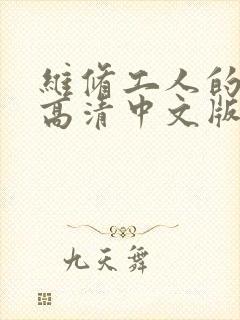 維脩工人的
高清中文版
九天舞